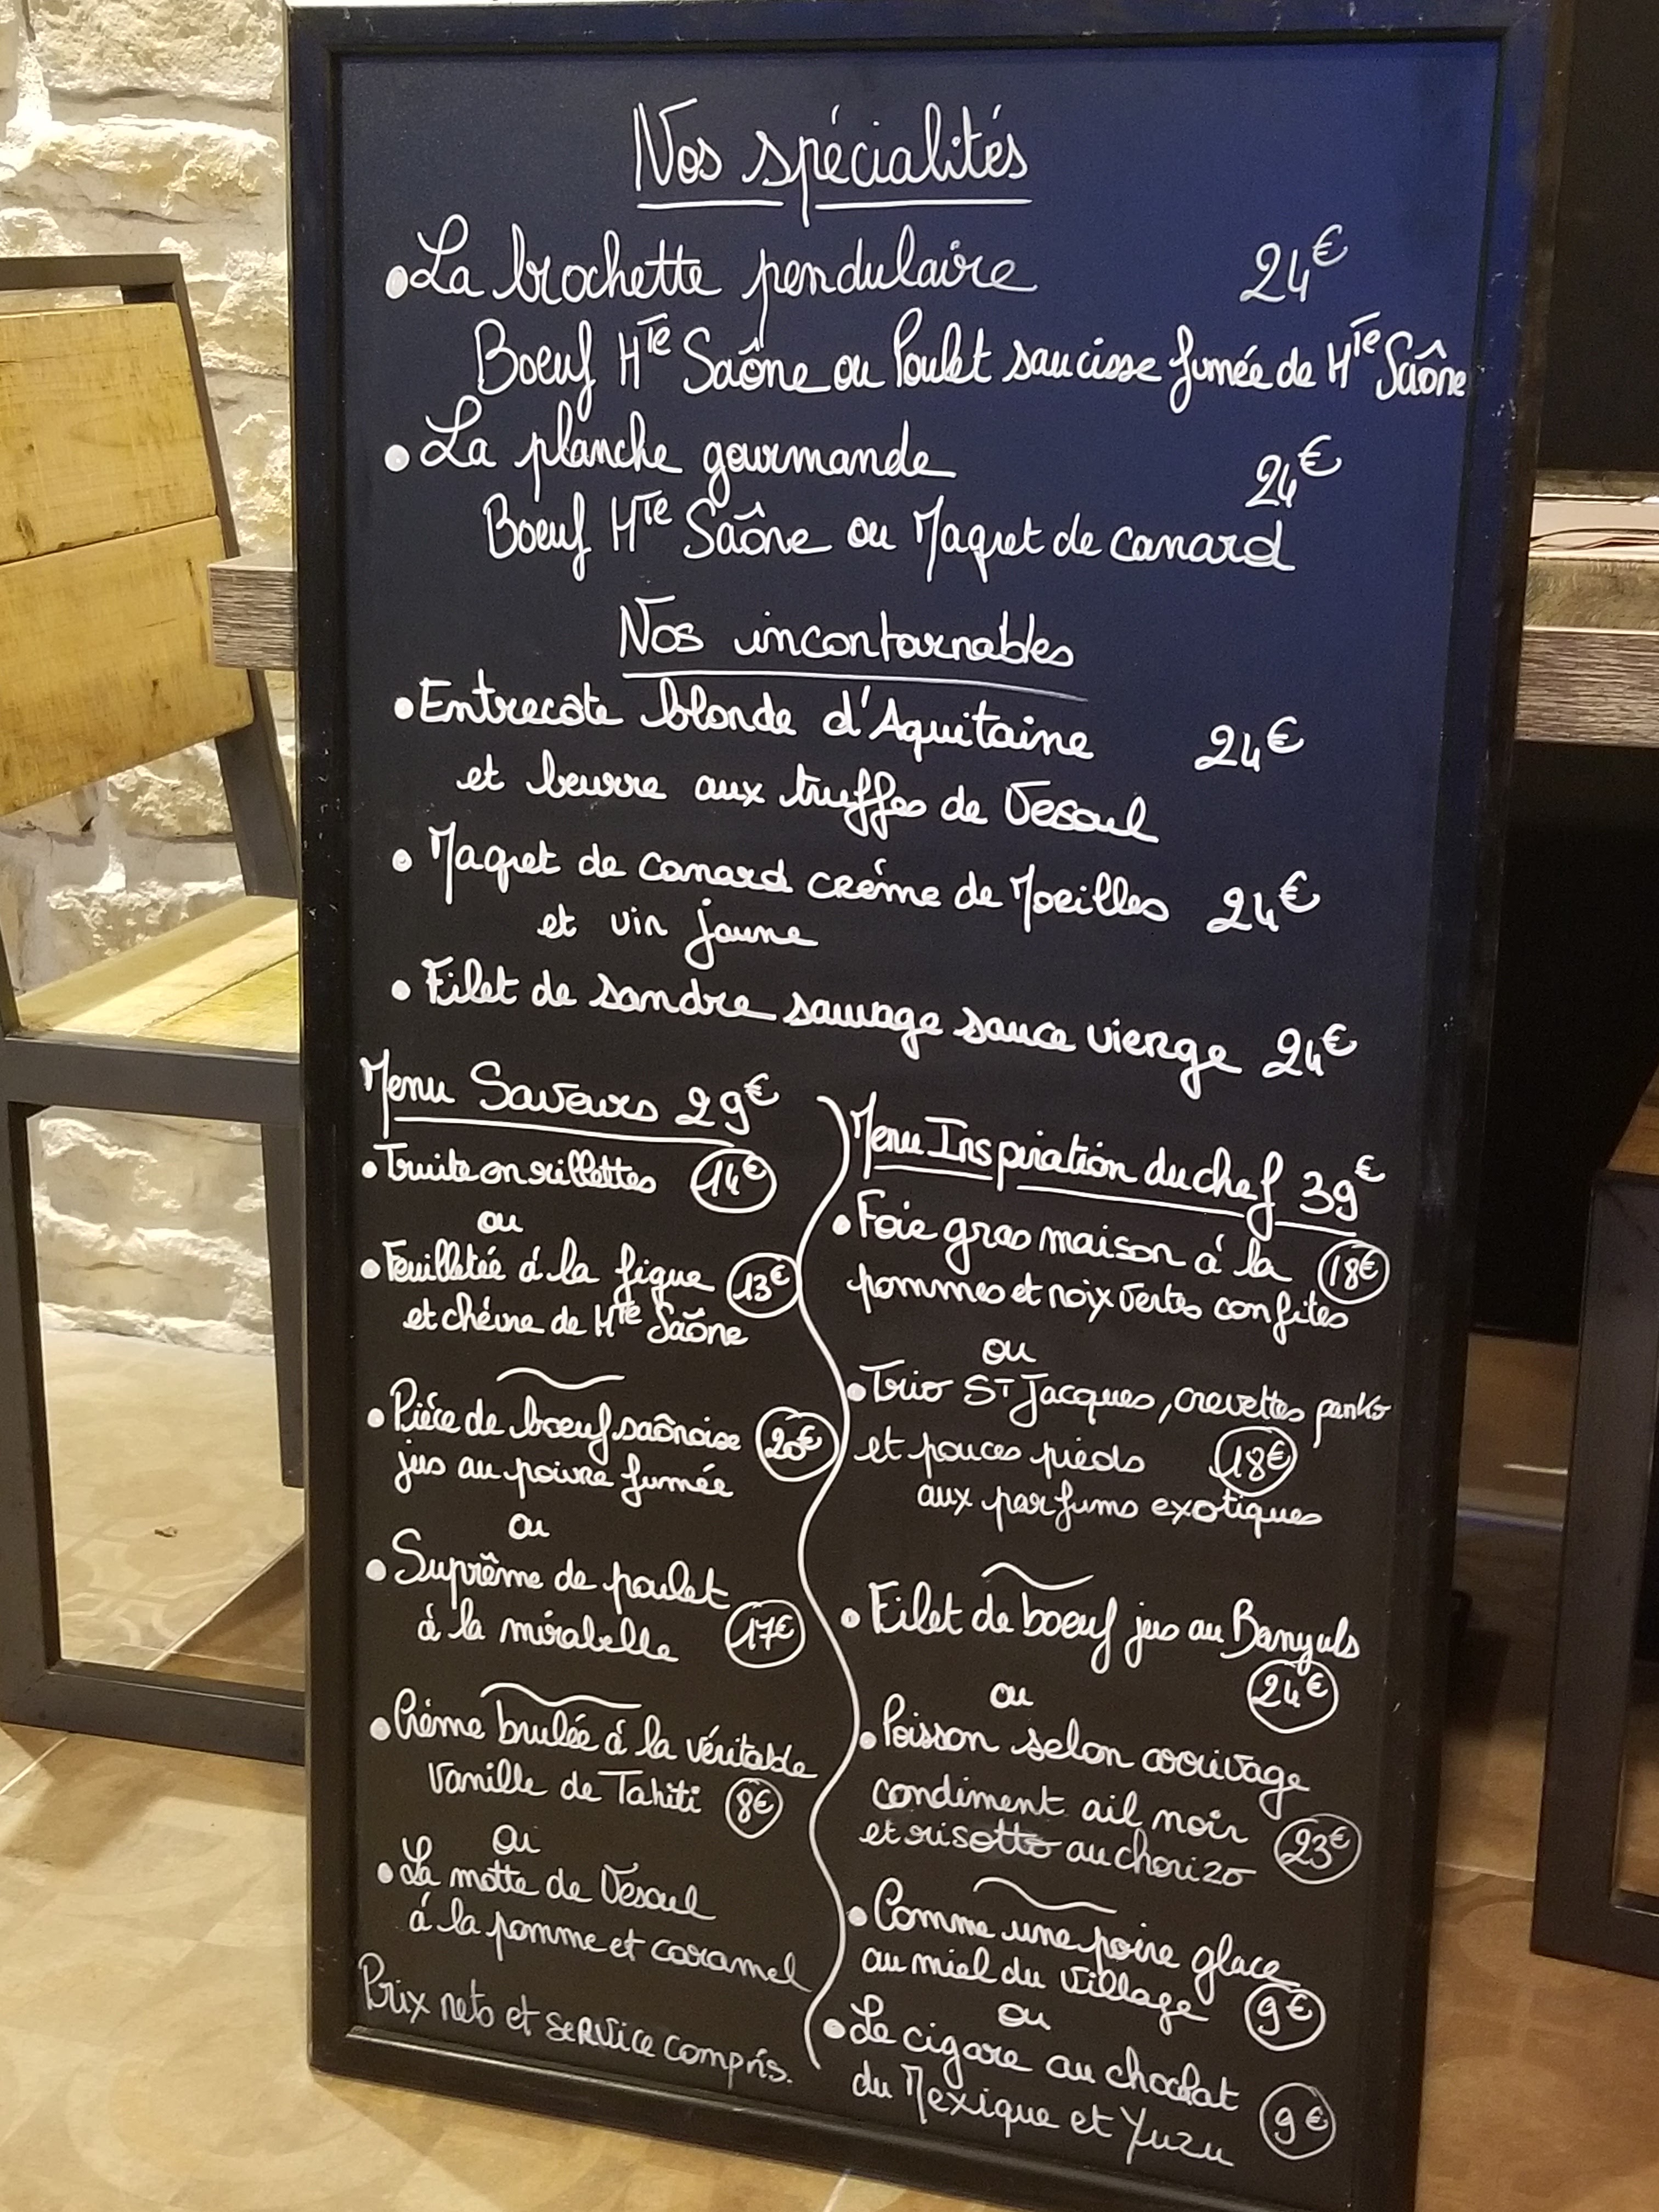 Nos spécialités
• La brochette pendulaire 24€
Boeuf Hte Saône ou Poulet saucisse fumée de Hte Saône
• La planche gourmande 24€
Boeuf Hte Saône ou Magret de canard
Nos incontournables
• Entrecôte blonde d'Aquitaine 24€
et beurre aux truffes de Vesoul
• Magret de canard crème de Morilles 24€
et vin jaune
• Filet de sandre sauvage sauce vierge 24€
Menu Saveurs 29€
• Truite en rillettes 14€
ou
• Feuilletée à la figue 13€
et chèvre de Hte Saône
• Pièce de bœuf saônoise 20€
jus au poivre fumée
ou
• Suprême de poulet
à la mirabelle 17€
• Crème brulée à la véritable
vanille de Tahiti 8€
ou
• La motte de Vesoul
à la pomme et caramel
Prix nets et service compris.
Menu Inspiration du chef 39€
• Foie gras maison à la 18€
pommes et noix vertes confites
ou
• Trio ST Jacques, crevettes panko
et pouces pieds 18€
aux parfums exotiques
• Filet de boeuf jus au Banyuls
24€
ou
• Poisson selon arrivage
condiment ail noir
et risotto au chorizo 23€
• Comme une poire glace
au miel du village 9€
ou
• Le cigare au choclat
du Mexique et Yuzu 9€